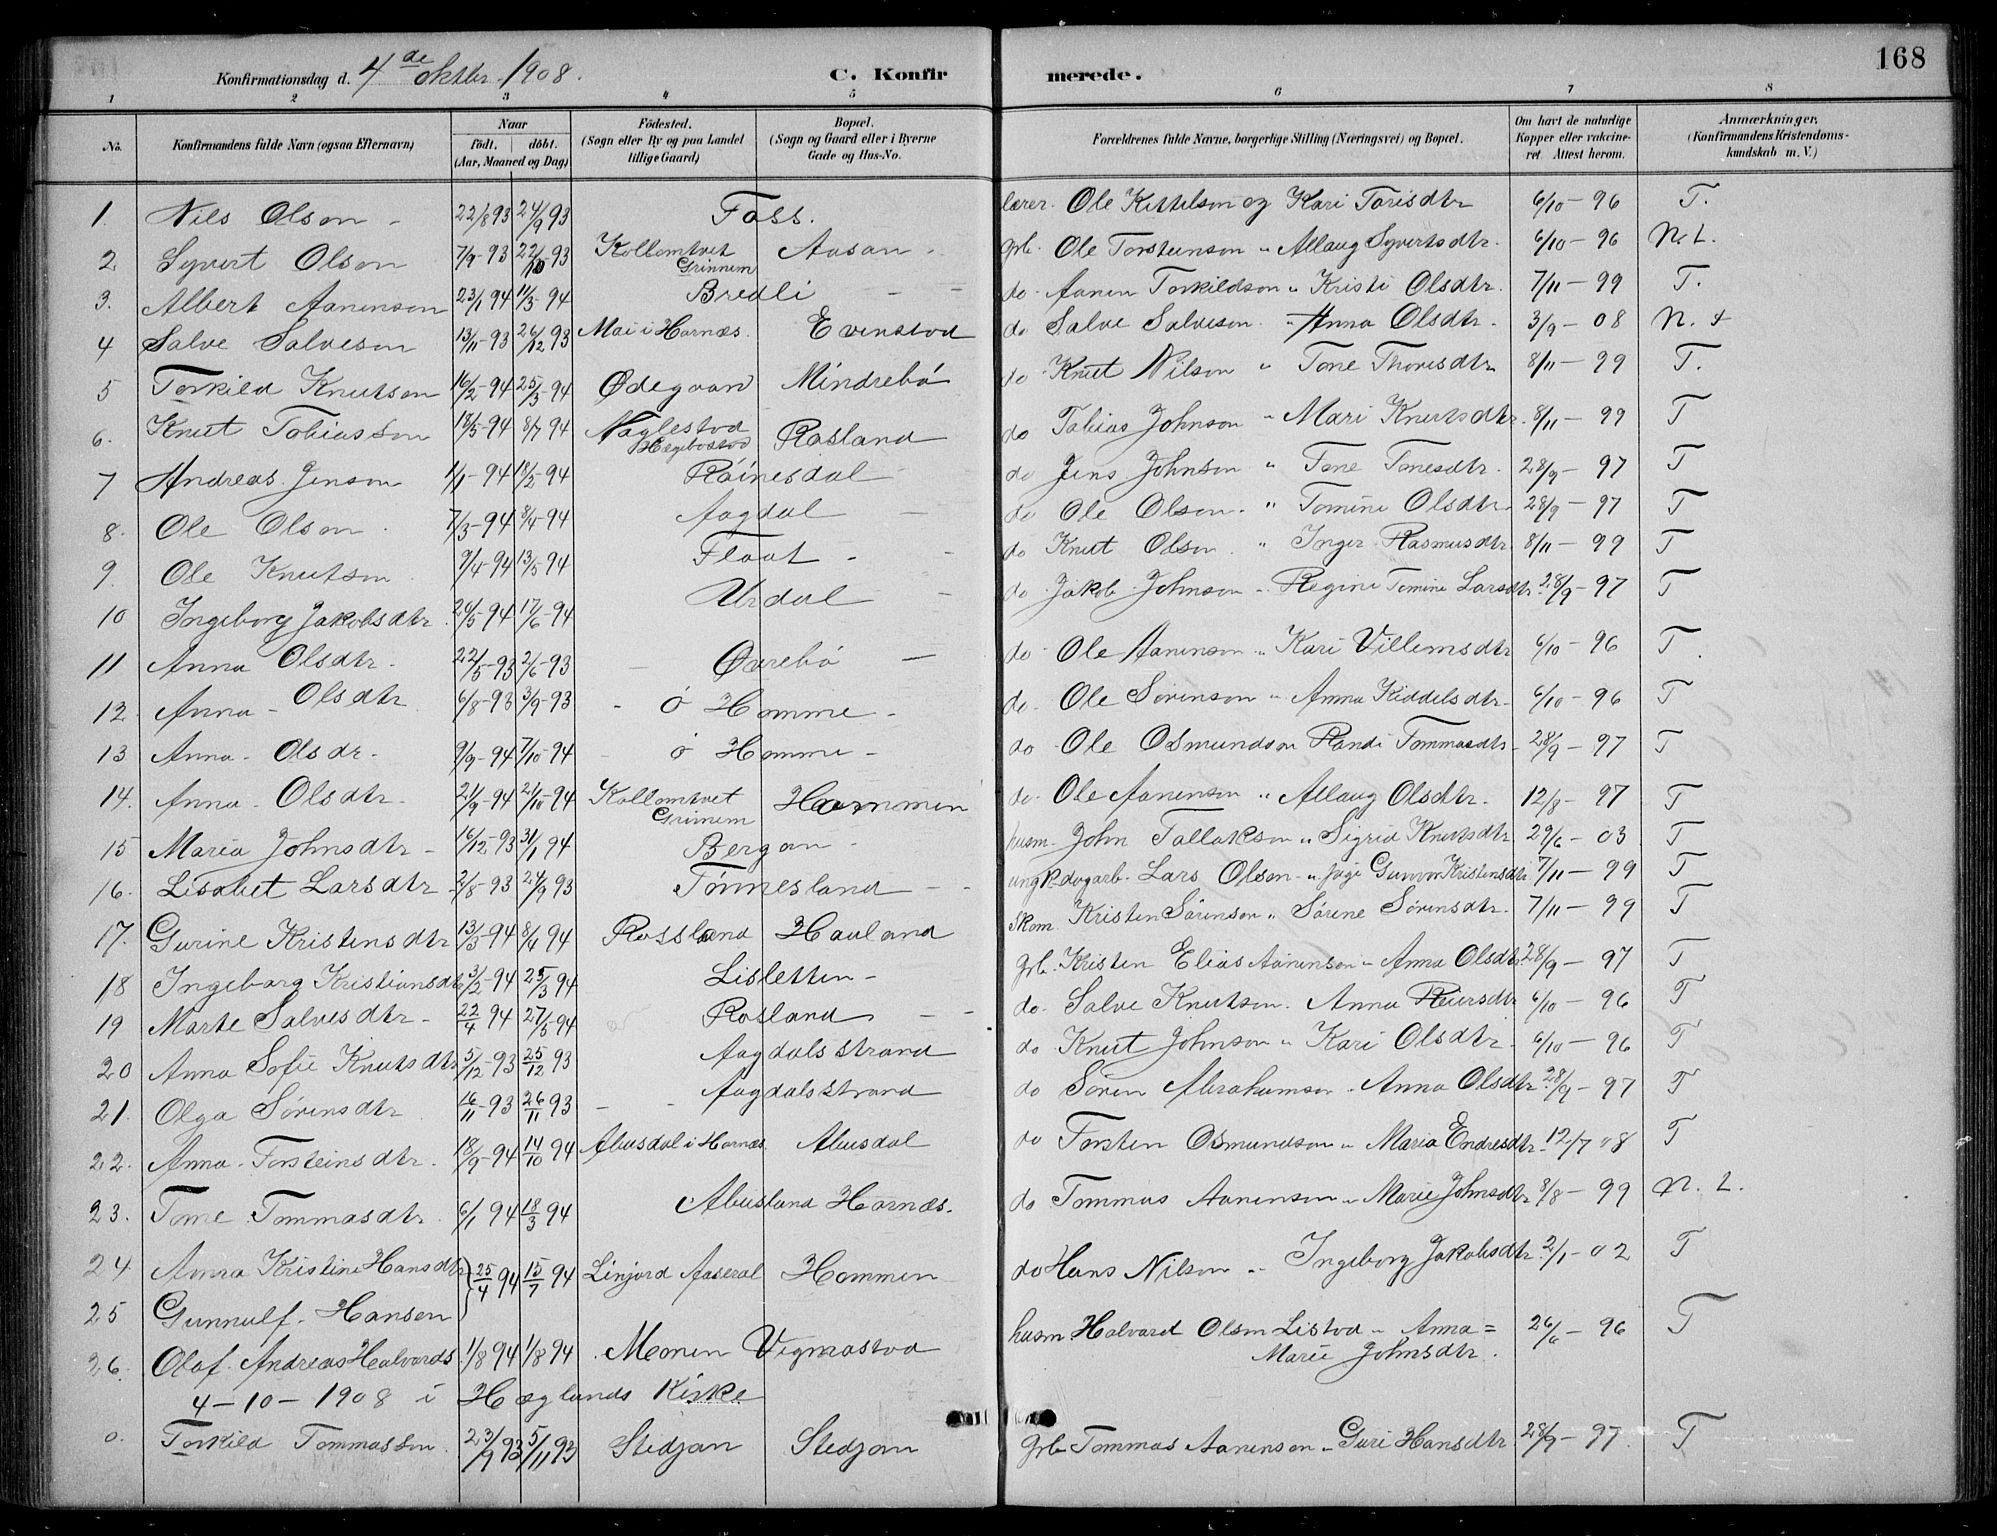 168
Konfirmationsdag d. 4de oktbr. 1908. C. Konfirmerede.
1 2 3 4 5 6 7 8
No. Konfirmandens fulde Navn (ogsaa Efternavn) Naar födt. döbt. (Aar, Maaned og Dag) Födested. (Sogn eller By og paa Landet tillige Gaard) Bopæl. (Sogn og Gaard eller i Byerne Gade og Hus-No. Forældrenes fulde Navne, borgerlige Stilling (Næringsvei) og Bopæl. Om havt de naturlige Kopper eller vakcineret. Attest herom. Anmærkninger. (Konfirmandens Kristendomskundskab m. V.)
1. Nils Olson - 22/8 93 24/9 93 Foss. lærer. Ole Kittelson og Kari Torisdtr 6/10 - 96 T.
2. Syvert Olson 7/9-93 22/10-93 Kollomtvet Grinnem Aasan - grb. Ole Torsteinson " Allaug Syvertsdtr. 6/10 - 96 N.L.
3. Albert Aanenson 23/1 94 11/3-94 Bredli - - do Aanen Torkildson " Kristi Olsdtr. 7/11 - 99 T.
4 Salve Salveson 13/11-93 26/12 93 Mai i Hornæs. Evenstod do Salve Salveson. " Anna Olsdtr. 3/9 - 08 N. +
5 Torkild Knutson 16/2-94 25/3-94 Ødegaan Mindrebö do Knut Nilson " Tone Thorisdtr 8/11 - 99 T.
6. Knut Tobiasson 18/5-94 8/7 94 Naglestod Hægebostod Rosland do Tobias Johnson " Mari Knutsdtr. 8/11 - 99 T
7 Andreas Jenson 1/1-94 18/2-94 Röinesdal - do Jens Johnson " Tone Tonesdtr. 28/9 - 97 T
8. Ole Olson. 7/3-94 8/4-94 Aagdal - do Ole Olson. " Tomine Olsdtr. 28/9 - 97 T
9. Ole Knutson 9/4-94 13/5 94 Flaat - - do Knut Olson. " Inger Rasmusdtr 8/11 - 99 T
10 Ingeborg Jakobsdtr. 24/5-94 17/6-94 Urdal - do Jakob Johnson " Regine Tomine Larsdtr. 28/9 - 97 T
11 Anna Olsdtr. 22/5-93 2/6-93 - Øvrebö - do Ole Aanenson " Kari Villemsdtr 6/10 - 96 T.
12. Anna - Olsdtr 6/8-93 3/9-93 - ö Homme - do. Ole Sörenson " Anna Kiddelsdtr. 6/10 - 96 T
13 Anna - Olsdr. 9/9-94 7/10-94 - ö Homme - do Ole Osmundson Randi Tommasdtr - 28/9 - 97 T
14. Anna - Olsdtr. 21/9-94 21/10-94 Kollomtvet Grimem Hommen do. Ole Aanenson " Allaug Olsdtr. 12/8 - 97 T
15 Maria Johnsdtr - 16/12-93 31/1 94 Bergan - husm. John Tallakson " Sigrid Knutsdtr 29/6 - 03 T
16. Lisabet Larsdtr 2/8-93 24/9 93 Tönnesland - - ungk. dagarb. Lars Olson " pige Gunvor Kristensdtr 7/11 - 99 T
17. Gurine Kristensdtr 13/3-94 8/4 94 Rossland Hauland Skom Kristen Sörenson " Sörine Sörensdtr. 7/11 - 99 T
18 Ingeborg Kristiansdtr 3/2-94 25/3 94 Lisletten - grb. Kristen Elias Aanenson " Anna Olsdtr. 28/9 - 97 T
19 Marte Salvesdtr - 22/4 94 27/5-94 Rosland - - do. Salve Knutson. Anna Reiersdtr 6/10 - 96 T
20 Anna Sofie Knutsdtr 5/12-93 25/12 93 Aagdalsstrand do Knut Johnson " Kari Olsdtr - 6/10 - 96 T
21. Olga Sörensdtr 16/11-93 26/11 93 - - Aagdalsstrand do Sören Abrahamson " Anna Olsdtr. 28/9 - 97 T
22. Anna - Torsteinsdtr. 18/9-94 14/10 94 Abusdal i Hornæs. Abusdal do Torsten Osmundson " Maria Endresdtr. 12/7 08 T
23. Tone Tommasdtr. 6/1 94 18/3 94 Abusland Hornæs. do Tommas Aanenson " Marie Johnsdtr 8/8 - 99 N. L.
24 Anna Kristine Hansdtr } 25/4 94 15/7 94 Linjord Aaseral Hommen do Hans Nilson " Ingeborg Jakobsdtr. 2/1 - 02 T
25 Gunnulf - Hansen
26. Olaf Andreas Halvords. 1/8 94 1/8 94 . Monen Vigmostod husm. Halvard Olsen Listod " Anna= Marie Johnsdtr. 26/6 - 96 T
4-10-1908 i Hæglands Kirke
0. Torkild Tommasson. 23/9 93 5/11 93 Stedjan Stedjan grb Tommas Aanenson " Guri Hansdtr. 28/9 - 97. T